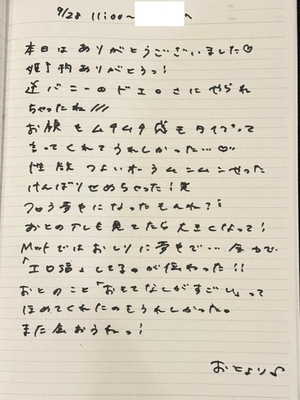 9/28 11:00～
本日はありがとうございました♡
姫予約ありがとうっ!
逆バニーのドエロさにやられ
ちゃったね!!!
お顔もムチムチ感もタイプって
言ってくれてうれしかった…♡♡
性欲つよい
せめちゃった!
夢中になったもんね?
おとの も見てたら 大きくなって!
Matではおしりに夢中で… 全力で
「エロ 」してるのが伝わった!!
おとのこと「おもてなしがすごい」って
ほめてくれたのもうれしかった。
また会おうねっ!
おとより♪